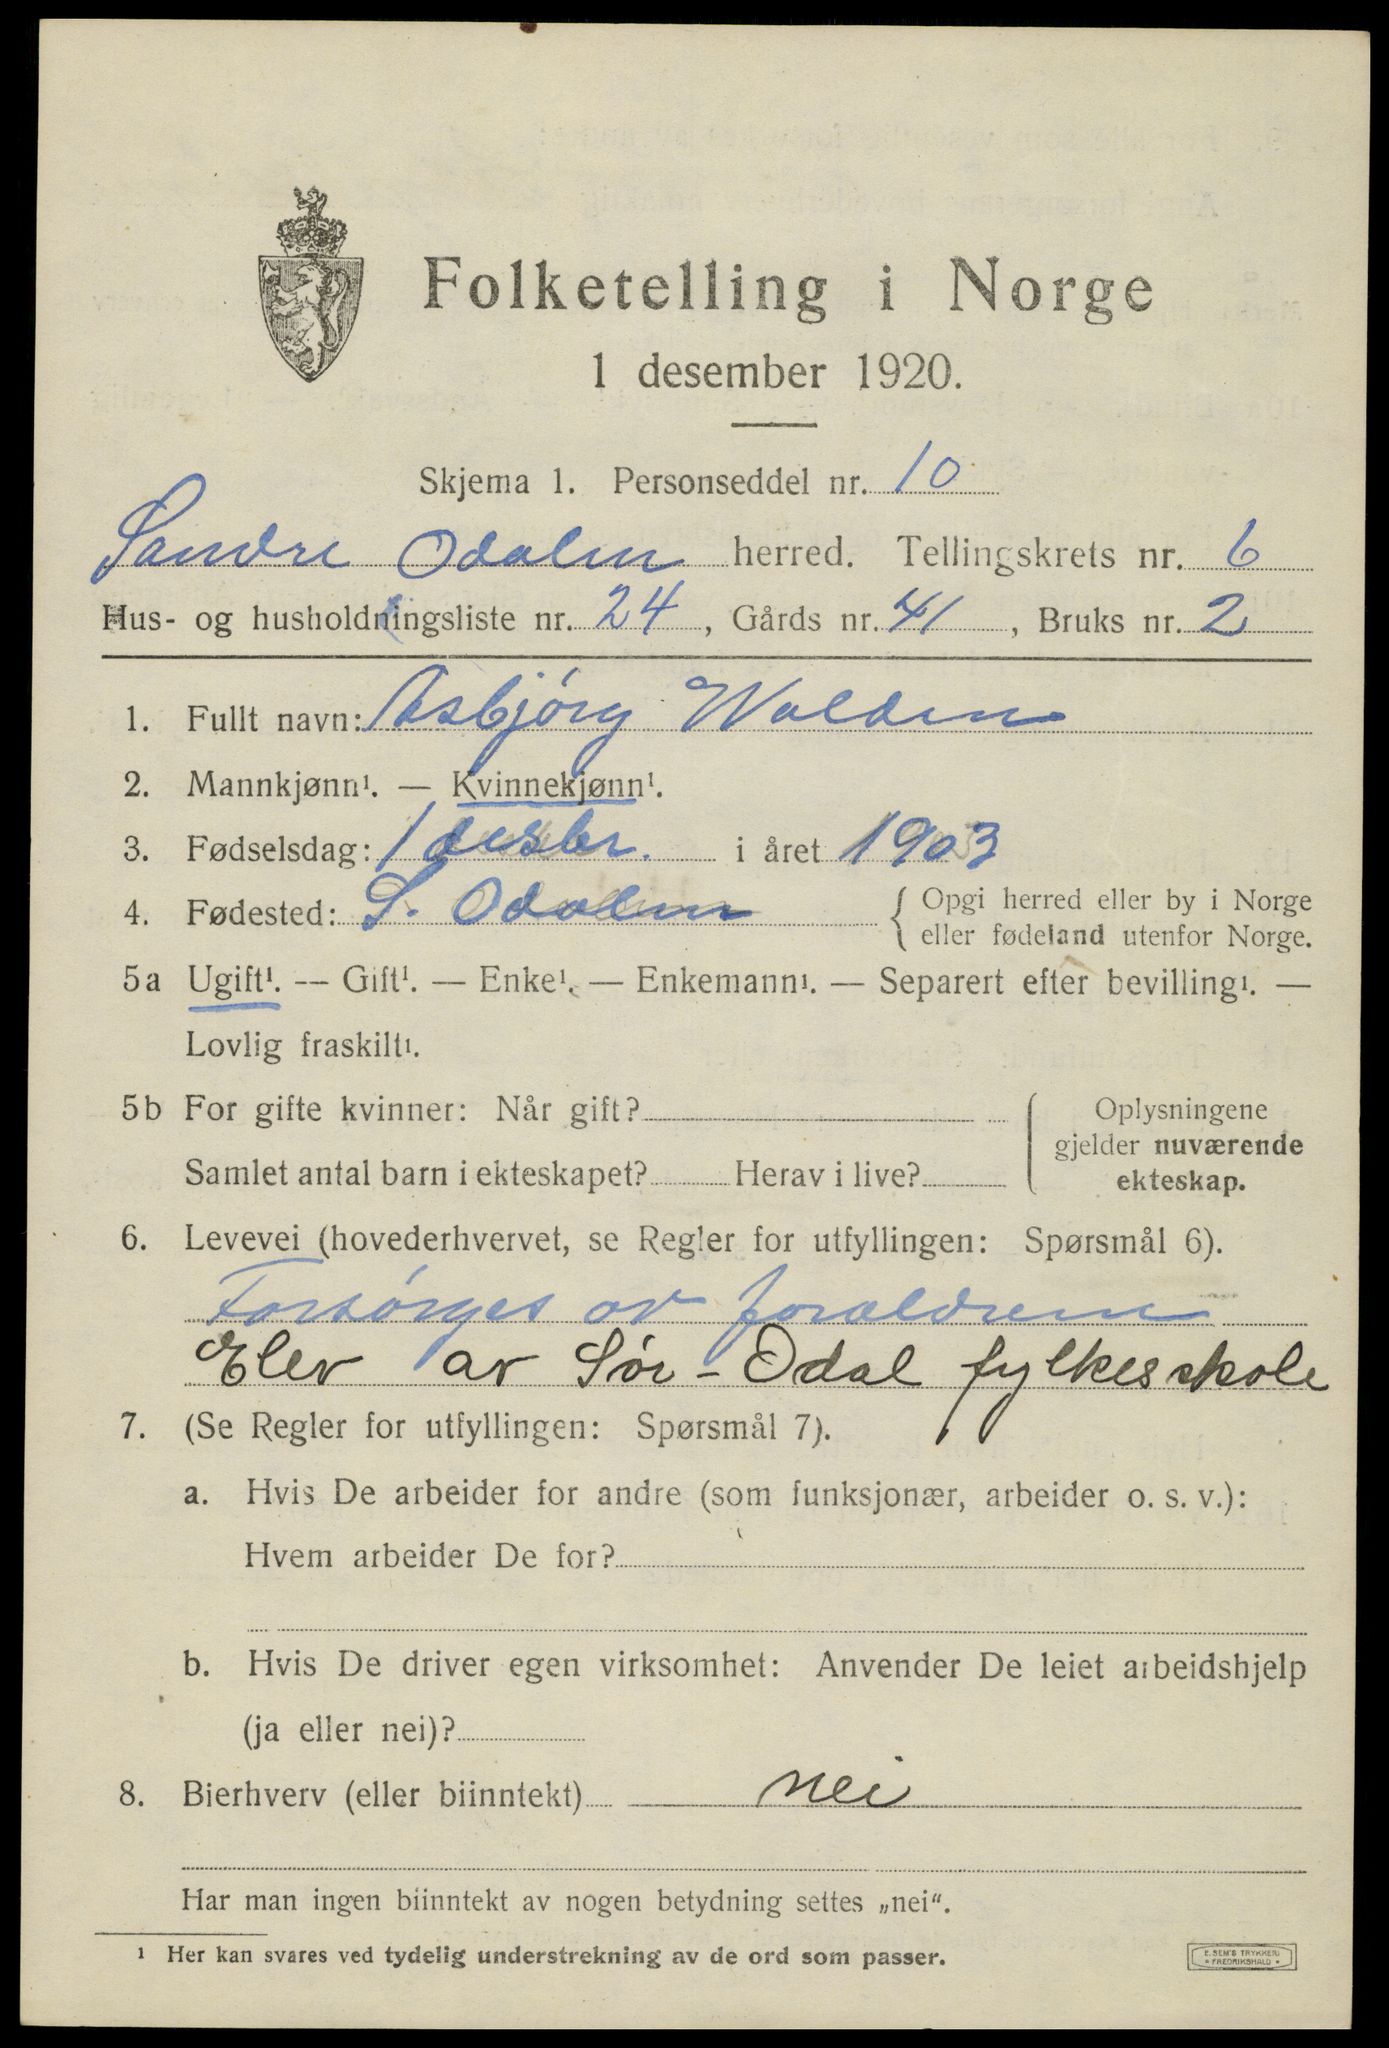 Folketelling i Norge
1 desember 1920.
Skjema 1. Personseddel nr. 10
Søndre Odalen herred. Tellingskrets nr. 6
Hus- og husholdningsliste nr. 24, Gårds nr. 41, Bruks nr. 2
1. Fullt navn: Asbjörg Walden
2. Mannkjønn¹. — Kvinnekjønn¹.
3. Fødselsdag: 1 desbr. i året 1903
4. Fødested: S. Odalen { Opgi herred eller by i Norge
eller fødeland utenfor Norge.
5a Ugift¹. — Gift¹. — Enke¹. — Enkemann¹. — Separert efter bevilling¹. —
Lovlig fraskilt¹.
5b For gifte kvinner: Når gift?
Samlet antal barn i ekteskapet? Herav i live?
Oplysningene
gjelder nuværende
ekteskap.
6. Levevei (hovederhvervet, se Regler for utfyllingen: Spørsmål 6).
Forsörges av foraldrene
Elev av Sør-Odal fylkesskole
7. (Se Regler for utfyllingen: Spørsmål 7).
a. Hvis De arbeider for andre (som funksjonær, arbeider o. s. v.):
Hvem arbeider De for?
b. Hvis De driver egen virksomhet: Anvender De leiet arbeidshjelp
(ja eller nei)?
8. Bierhverv (eller biinntekt) nei
Har man ingen biinntekt av nogen betydning settes „nei“.
¹ Her kan svares ved tydelig understrekning av de ord som passer.
E. SEM'S TRYKKERI
* FREDRIKSHALD *